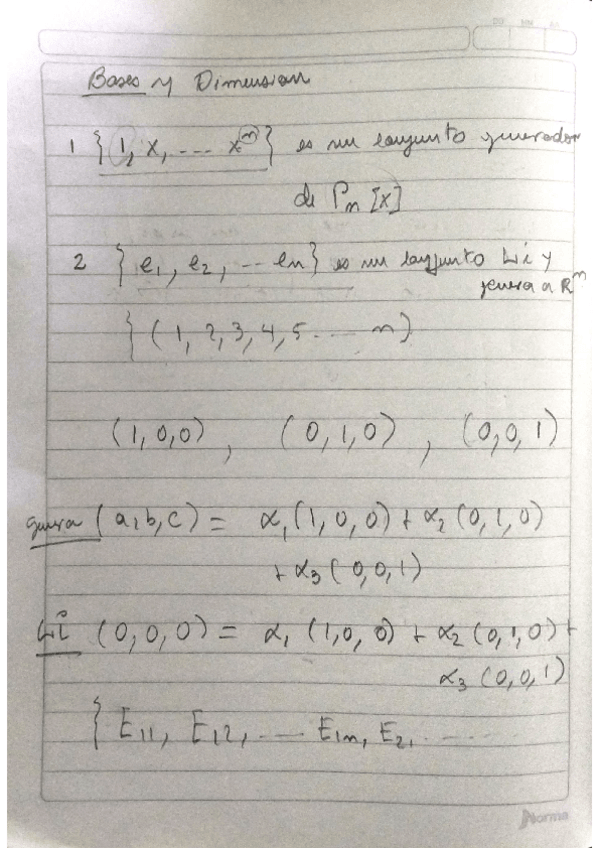 DD MM AA
Bases y Dimension
1 {1, x, .... x^n} es un conjunto generador
de Pn [x]
2 {e1, e2, ... en} es un conjunto Li y
genera a R^n
{(1, 2, 3, 4, 5 .... n)
(1,0,0), (0,1,0), (0,0,1)
genera (a,b,c) = α1(1,0,0) + α2(0,1,0)
+ α3(0,0,1)
Li (0,0,0) = α1 (1,0,0) + α2 (0,1,0) +
α3 (0,0,1)
{E11, E12, .... E1n, E21 ........
Norma